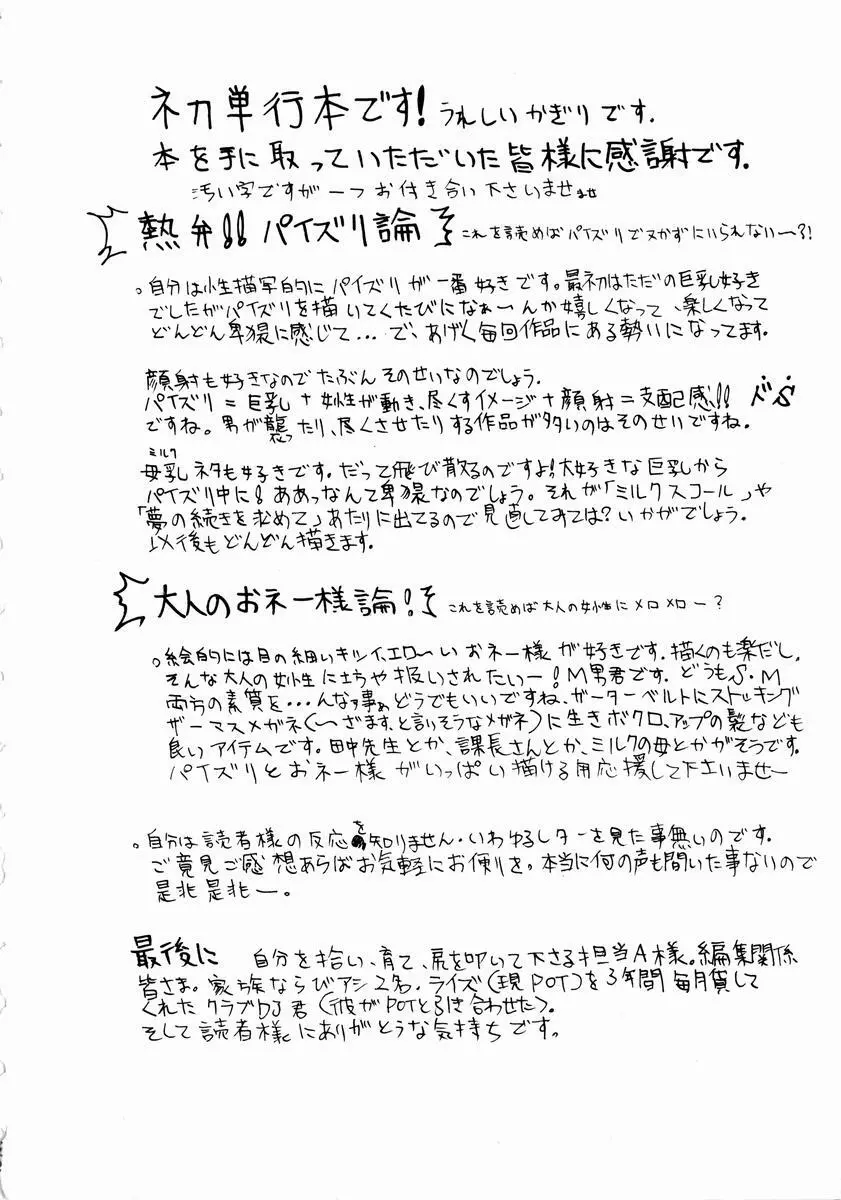 初単行本です! うれしいかぎりです.
本を手に取っていただいた皆様に感謝です.
汚い字ですが一つお付き合い下さいませ ませ
熱弁!! パイズリ論 これを読めばパイズリでヌかずにいられないー?!
。自分は性描写的にパイズリが一番好きです。最初はただの巨乳好き
でしたがパイズリを描いてくたびになぁーんか嬉しくなって、楽しくなって
どんどん卑猥に感じて... で、あげく毎回作品にある勢いになってます.
顔射も好きなのでたぶんそのせいなのでしょう.
パイズリ=巨乳+女性が動き、尽くすイメージ+顔射=支配感!! ドS
ですね。男が襲ったり、尽くさせたりする作品が多いのはそのせいですね.
ミルク
母乳ネタも好きです.だって飛び散るのですよ!大好きな巨乳から
パイズリ中に! ああっなんて卑猥なのでしょう。それが「ミルクスコール」や
「夢の続きを求めて」あたりに出てるので見直してみては?いかがでしょう.
以後もどんどん描きます.
大人のおネー様論! これを読めば大人の女性にメロメロー?
。絵的には目の細いキツイ、エローいおネー様が好きです.描くのも楽だし、
そんな大人の女性に玉ちや扱いされたいー!M男君です.どうもS・M
両方の素質を...んなァ事ぁどうでもいいですね、ガーターベルトにストッキング
ザーマスメガネ(〜ざます、と言いそうなメガネ)に生きボクロ、アップの髪なども
良いアイテムです.田中先生とか、課長さんとか、ミルクの母とかがそうです.
パイズリとおネー様がいっぱい描ける用応援して下さいませー
。自分は読者様の反応を知りません・いわゆるレターを見た事無いのです.
ご意見ご感想あらばお気軽にお便りを。本当に何の声も聞いた事ないので
是非是非ー。
最後に 自分を拾い、育て、尻を叩いて下さる担当A様。編集関係
皆さま。家族ならびアシ2名.ライズ(現POT)を3年間毎月貸して
くれたクラブDJ君(彼がPOTと引き合わせた)。
そして読者様にありがとうな気持ちです。